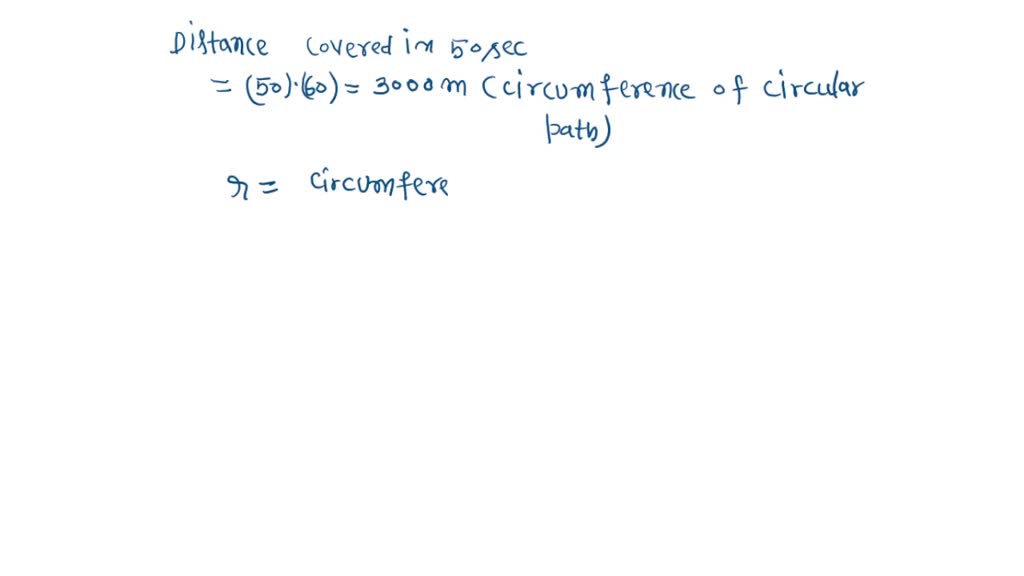 Distance covered in 50 sec
= (50)·(60) = 3000 m (circumference of circular
path)
r = circumfere